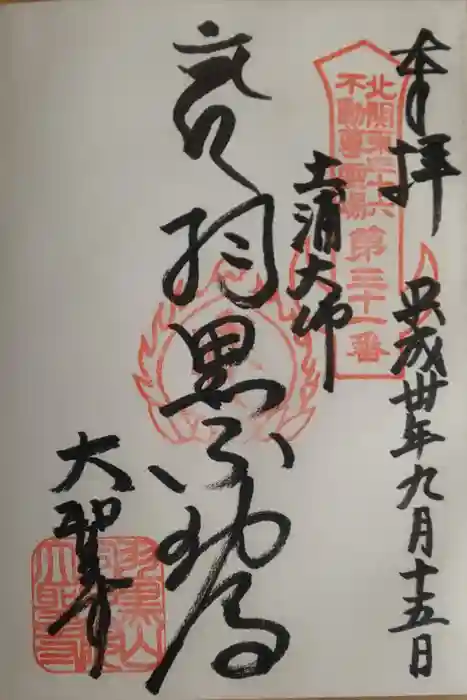 奉拝
平成卅年九月十五日
北関東三十六
不動尊霊場
第三十一番
土浦大師
黒不動
大聖寺